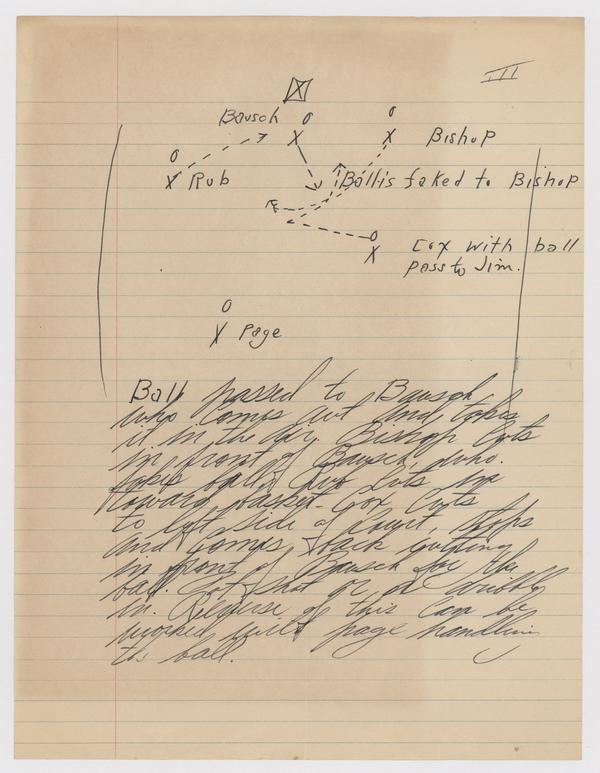 III
Bausch
Bishop
Rub
Ball is faked to Bishop
Cox with ball
pass to Jim.
Page
Ball passed to Bausch
who comes out and takes
it in the air. Bishop Cuts
in front of Bausch, who
fakes ball &
toward basket - Cox Cuts
to left side of Court, stops
and comes back cutting
in front of Bausch for the
ball. shot or a dribble
in. Reverse of this can be
worked with page handling
the ball.